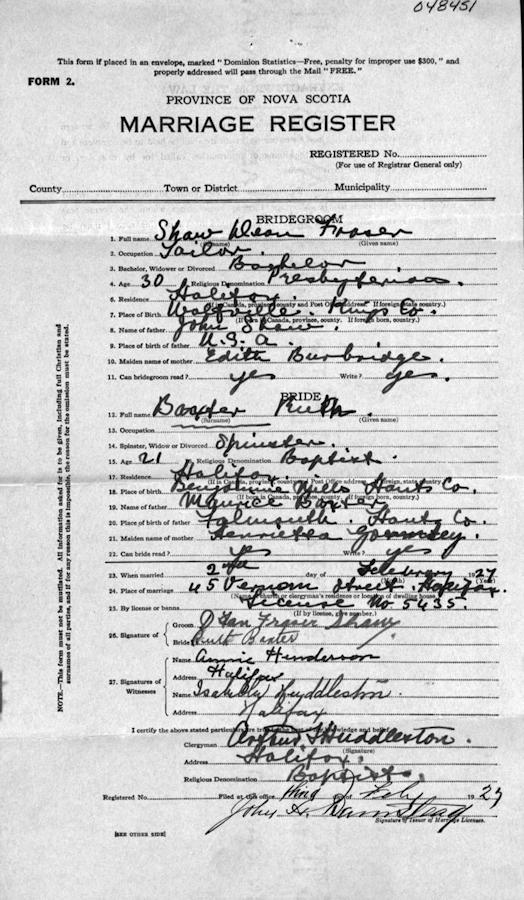 048451
This form if placed in an envelope, marked "Dominion Statistics—Free, penalty for improper use $300," and
properly addressed will pass through the Mail "FREE."
FORM 2.
PROVINCE OF NOVA SCOTIA
MARRIAGE REGISTER
REGISTERED No.
(For use of Registrar General only)
County Town or District Municipality
BRIDEGROOM
1. Full name Shaw Dean Fraser
(Surname) (Given name)
2. Occupation Tailor.
3. Bachelor, Widower or Divorced Bachelor
4. Age 30 Religious Denomination Presbyterian
6. Residence Halifax
(If in Canada, province, county and Post Office address. If foreign, state country.)
7. Place of Birth Wolfville. Kings Co.
(If in Canada, province, county. If foreign born, country.)
8. Name of father John Shaw.
9. Place of birth of father U.S.A.
10. Maiden name of mother Edith Burbridge.
11. Can bridegroom read? yes Write? yes.
BRIDE
12. Full name Baxter Ruth.
(Surname) (Given name)
13. Occupation
14. Spinster, Widow or Divorced Spinster.
15. Age 21 Religious Denomination Baptist.
17. Residence Halifax
(If in Canada, province, county, Post Office address. If foreign, state country)
18. Place of birth Mills Hants Co.
(If born in Canada, province, county. If foreign born, country.)
19. Name of father Maurice Baxter
20. Place of birth of father Falmouth. Hants Co.
21. Maiden name of mother Henrietta
22. Can bride read? yes Write? yes
23. When married 2nd day of February 1927
(Month) (Year)
24. Place of marriage 45 Vernon Street Halifax.
(Name of church or clergyman's residence or location of dwelling house)
25. By license or banns License No 5435.
(If by license, give number.)
Groom D Fraser Shaw
26. Signature of
Bride Ruth Baxter
Name Annie Henderson
Address Halifax
27. Signatures of
Witnesses
Name Huddleston.
Address Halifax
I certify the above stated particulars are true to the best of my knowledge and belief.
Clergyman Huddleston.
(Signature)
Address Halifax.
Religious Denomination Baptist.
Registered No. Filed at this office third of Feby 1927
John H.
Signature of Issuer of Marriage Licenses.
[SEE OTHER SIDE]
NOTE.—This form must not be mutilated. All information asked for is to be given, including full Christian and
surnames of all parties, and if for any reason this is impossible, the reason for the omission must be stated.